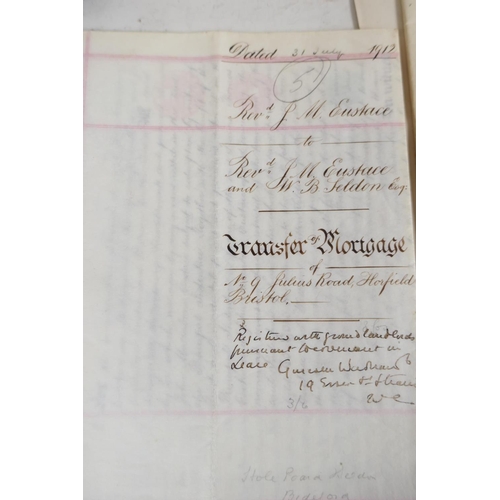 Dated 31 July 1912
5
Revd. J. M. Eustace
to
Revd. J. M. Eustace
and W. B. Seldon Esq.
Transfer of Mortgage
of
No 9 Julius Road, Horfield
Bristol.
Register with ground landlords
pursuant to covenant in
Lease
19 Essex St Strand
WC
3/6